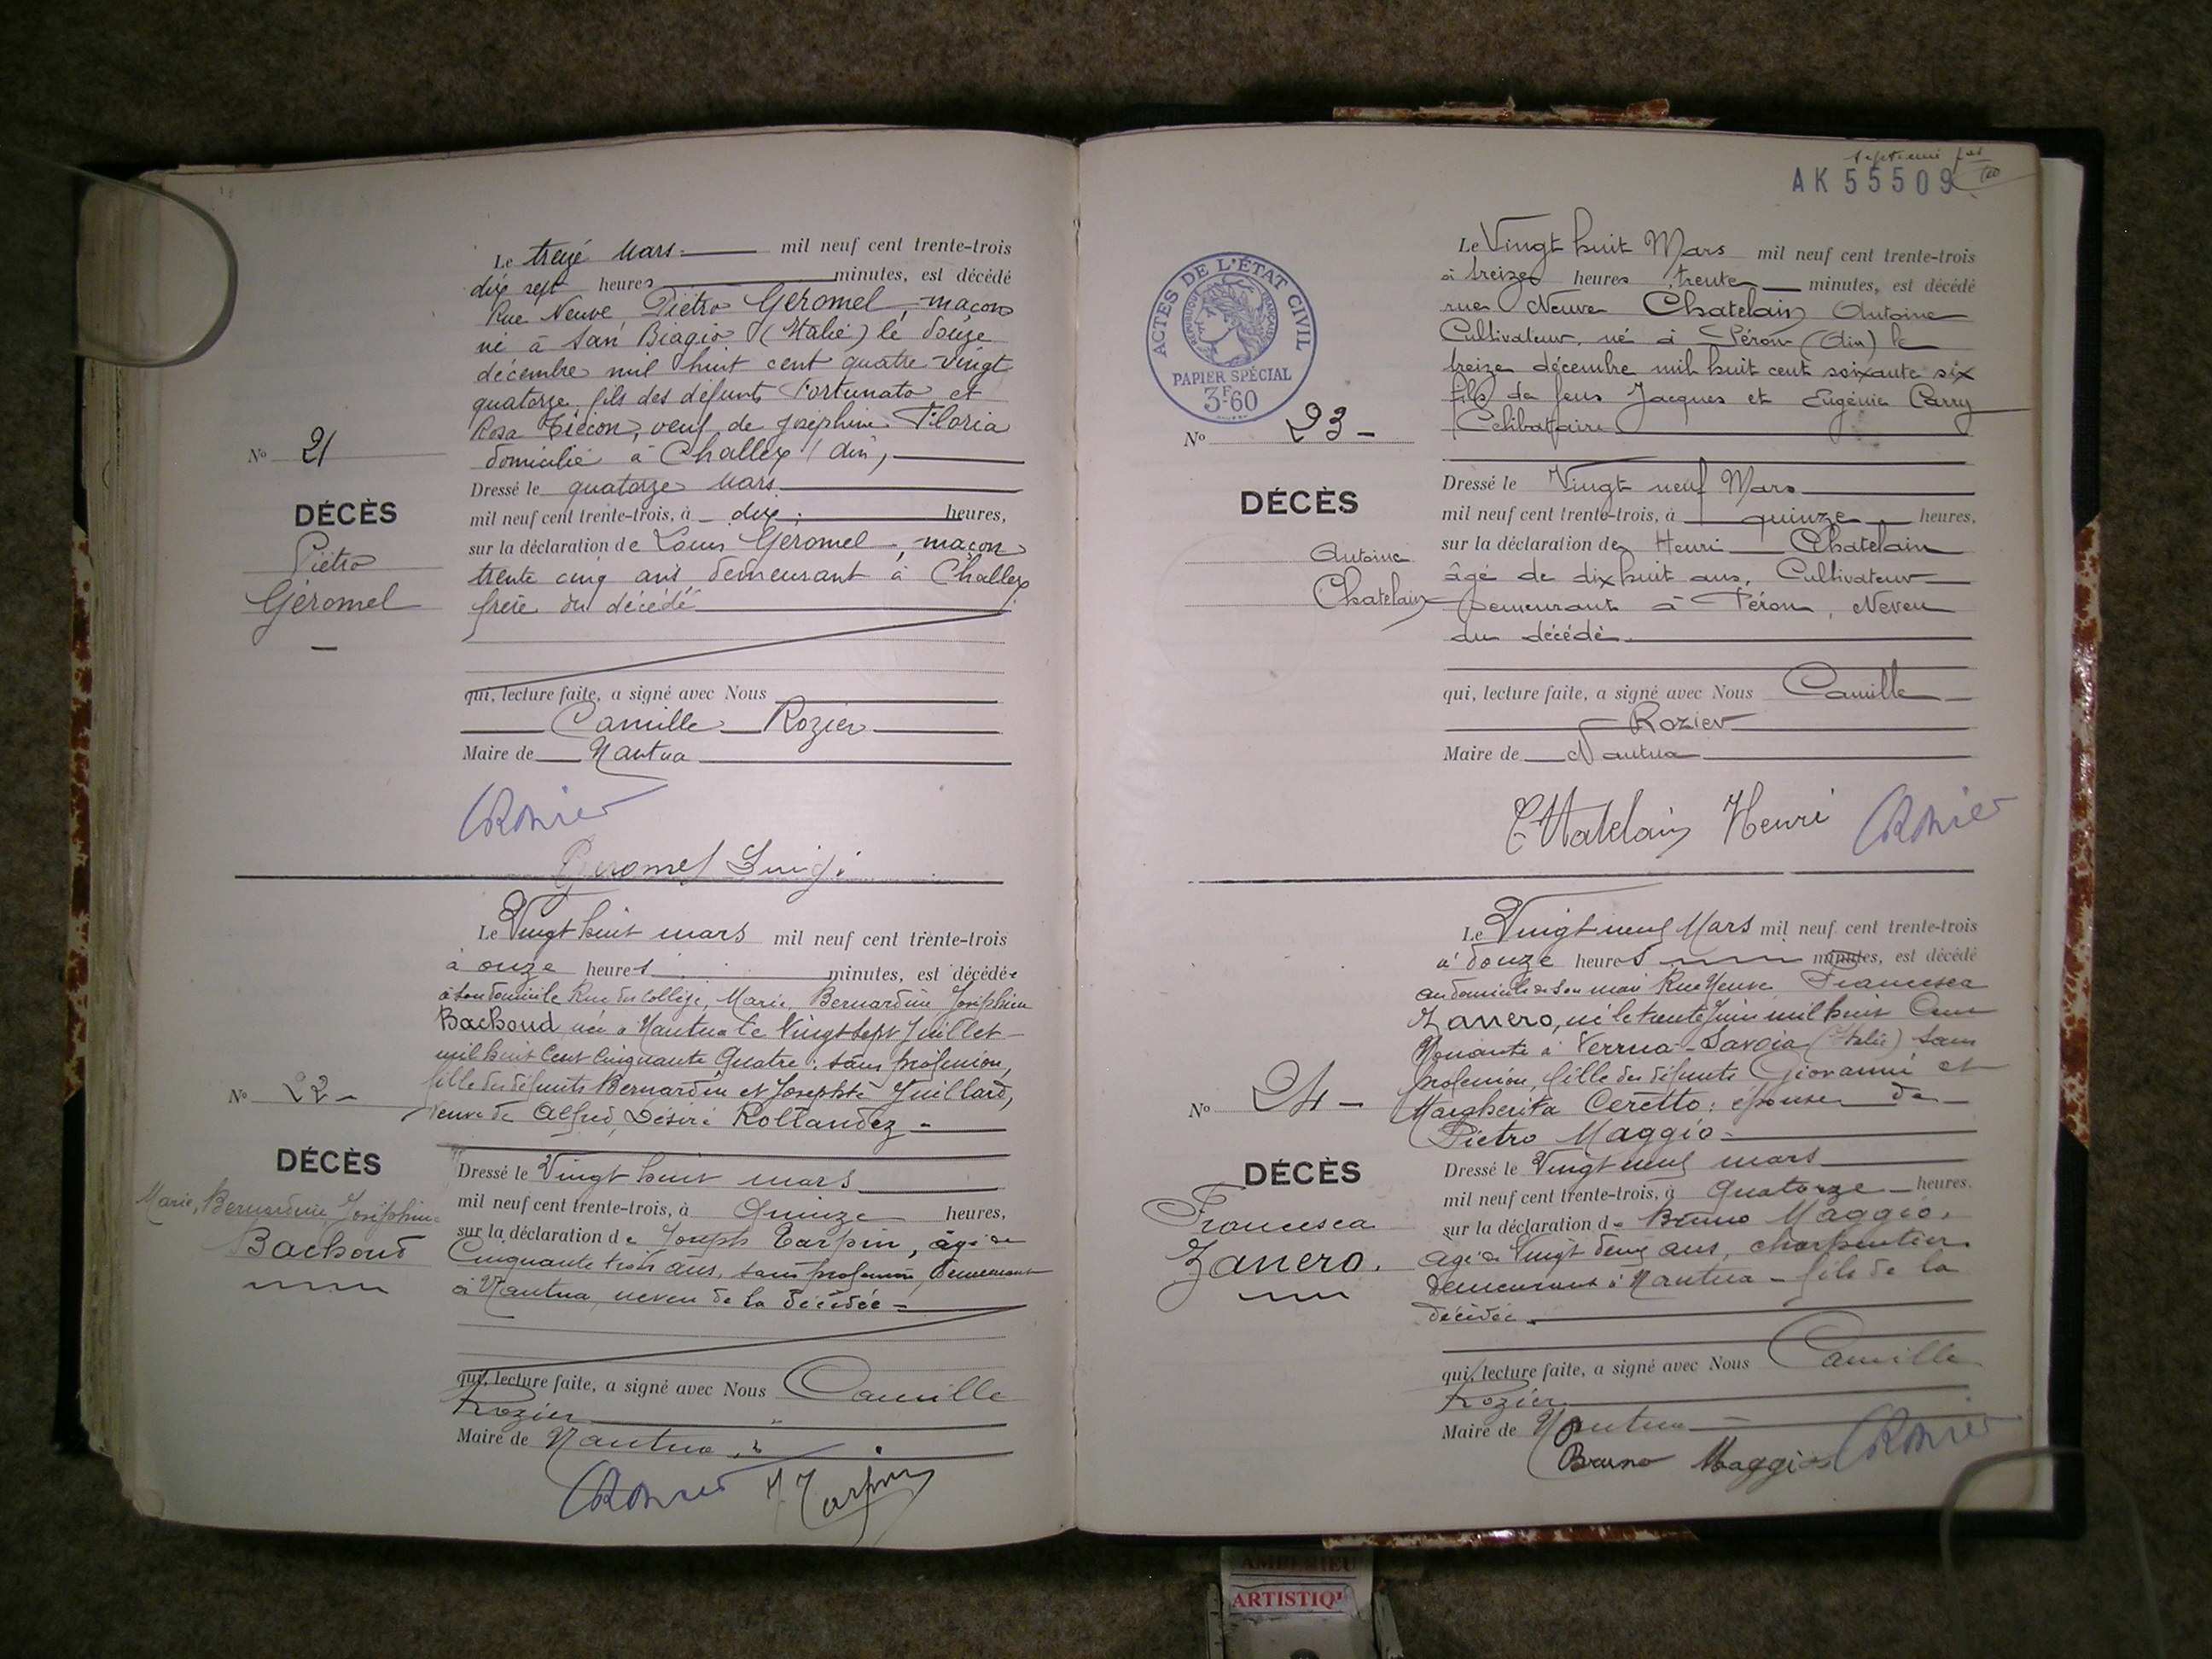 Le treize Mars mil neuf cent trente-trois
dix sept heures minutes, est décédé
Rue Neuve Piétro Géromel, maçon
né à San Biagio (Italie) le douze
décembre mil huit cent quatre vingt
quatorze, fils des défunts Fortunato et
Rosa veuf de Joséphine Floria
domicilié à Challex (Ain),
No 21
DÉCÈS
Piétro
Géromel
Dressé le quatorze Mars
mil neuf cent trente-trois, à dix heures,
sur la déclaration de Louis Géromel, maçon
trente cinq ans demeurant à Challex
frère du décédé
qui, lecture faite, a signé avec Nous
Camille Rozier
Maire de Nantua
CRozier
Geromel Luigi
Le Vingt huit mars mil neuf cent trente-trois
à onze heures minutes, est décédée
à son domicile Rue du Collège, Marie Bernardine Joséphine
Bachoud, née à Nantua le Vingt sept Juillet
mil huit cent cinquante quatre, sans profession,
fille des défunts Bernardin et Josephte Juillard,
Veuve de Alfred, Désiré Rollandez
No 22
DÉCÈS
Marie, Bernardine, Joséphine
Bachoud
Dressé le Vingt huit mars
mil neuf cent trente-trois, à Quinze heures,
sur la déclaration de Joseph Tarpin, âgé de
Cinquante trois ans, sans profession, demeurant
à Nantua, neveu de la décédée
qui, lecture faite, a signé avec Nous Camille
Rozier
Maire de Nantua
CRozier J Tarpin
AK 55509
ACTES DE L'ÉTAT CIVIL
RÉPUBLIQUE FRANÇAISE
PAPIER SPÉCIAL
3F60
Le Vingt huit Mars mil neuf cent trente-trois
à treize heures trente minutes, est décédé
rue Neuve Chatelain Antoine
Cultivateur, né à Péron (Ain) le
treize décembre mil huit cent soixante six
fils de feus Jacques et Eugénie Carry
Célibataire
No 23
DÉCÈS
Antoine
Chatelain
Dressé le Vingt neuf Mars
mil neuf cent trente-trois, à quinze heures,
sur la déclaration de Henri Chatelain
âgé de dix huit ans, Cultivateur
demeurant à Péron, Neveu
du décédé
qui, lecture faite, a signé avec Nous Camille
Rozier
Maire de Nantua
Chatelain Henri CRozier
Le Vingt neuf Mars mil neuf cent trente-trois
à douze heures minutes, est décédé
au domicile de son mari Rue Neuve Francesca
Zanero, née le trente Juin mil huit Cent
Nonante à Verrua-Savoia (Italie) sans
profession, fille des défunts Giovanni et
Margherita Ceretto; épouse de
Pietro Maggio
No 24
DÉCÈS
Francesca
Zanero.
Dressé le Vingt neuf mars
mil neuf cent trente-trois, à Quatorze heures,
sur la déclaration de Bruno Maggio,
âgé de Vingt deux ans, charpentier
demeurant à Nantua - fils de la
décédée.
qui, lecture faite, a signé avec Nous Camille
Rozier
Maire de Nantua
Bruno Maggio CRozier
AMBERIEU
ARTISTIQU